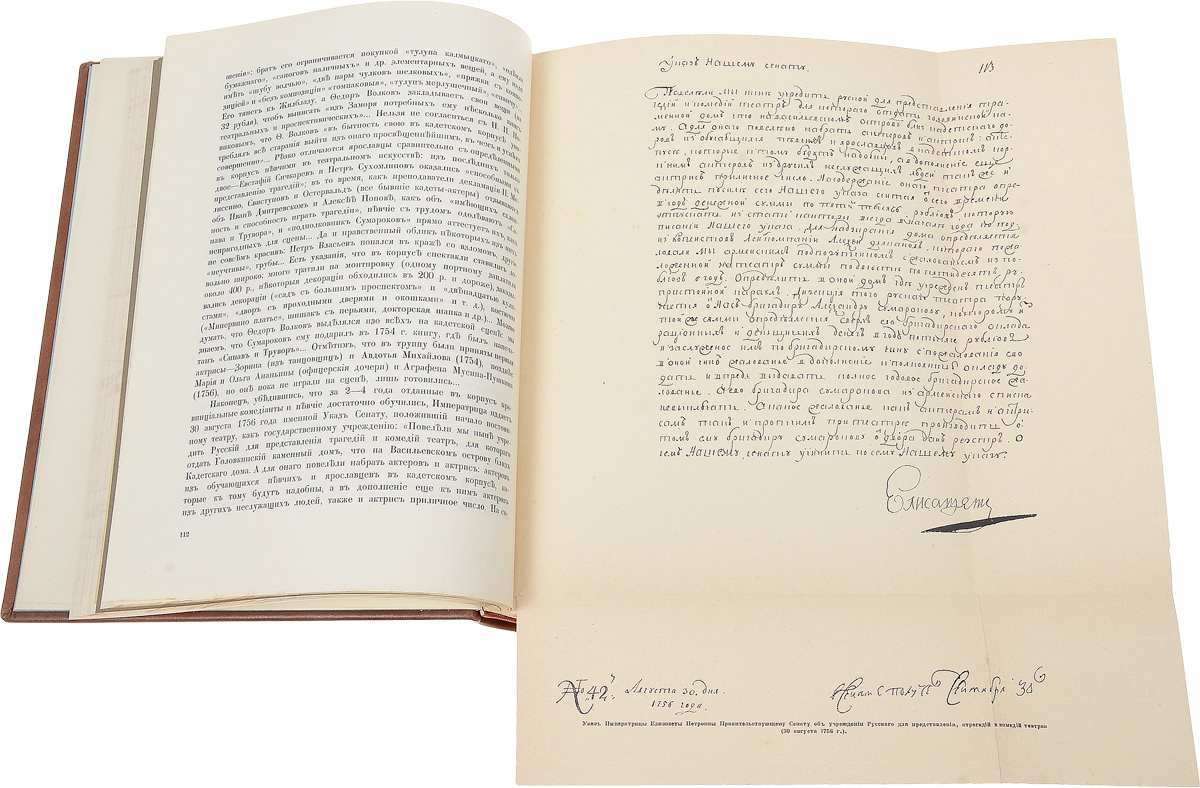 шенія»: братъ его ограничивается покупкой «тулупа калмыцкаго»,
бумажнаго», «сапоговъ наличныхъ» и др. элементарныхъ вещей, а ему
имѣть «шубу волчью», «двѣ пары чулковъ шелковыхъ», «пряжки съ
зиціей» и «безъ композиціи» «томпаковыя», «тулупъ мерлушечный»,
Его тянетъ къ Живблазу, а Ѳедоръ Волковъ закладываетъ свои вещи (за
32 рубля), чтобъ выписать «изъ Заморя потребныхъ ему нѣсколько книгъ
театральныхъ и проспективическихъ»... Нельзя не согласиться съ П. П.
виковымъ, что Ѳ. Волковъ «въ бытность свою въ кадетскомъ корпусѣ
треблялъ всѣ старанія выйти изъ онаго просвѣщеннѣйшимъ, въ чемъ и успѣлъ
совершенно»... Рѣзко отличаются ярославцы сравнительно съ опредѣленными
въ корпусъ пѣвчими въ театральномъ искусствѣ: изъ послѣднихъ только
двое—Евстафій Сичкаревъ и Петръ Сухомлиновъ оказались «способными къ
представленію трагедій»; въ то время, какъ преподаватели декламаціи
лиссино, Свистуновъ и Остервальдъ (все бывшіе кадеты-актеры) отзываются
объ Иванѣ Дмитревскомъ и Алексѣѣ Поповѣ, какъ объ «имѣющихъ склон-
ность и способность играть трагедіи», пѣвчіе съ трудомъ одолѣваютъ «Си-
нава и Трувора», и «подполковникъ Сумароковъ» прямо аттестуетъ ихъ
непригодныхъ для сцены... Да и нравственный обликъ нѣкоторыхъ изъ нихъ
не совсѣмъ красивъ: Петръ Власьевъ попался въ кражѣ со взломомъ, другіе
«неучтивы», грубы... Есть указанія, что въ корпусѣ спектакли ставились до-
вольно широко: много тратили на монтировку (одному портному заплатили
около 400 р., нѣкоторыя декораціи обходились въ 200 р. и дороже),
вались декораціи («садъ съ большимъ проспектомъ» и «двѣнадцатью ку-
стами», «дворъ съ проходными дверями и окошками» и т. д.), костюмы
(«Минервино платье», шишакъ съ перьями, докторская шапка и др.)... Можно
думать, что Ѳедоръ Волковъ выдѣлялся изо всѣхъ на кадетской сценѣ: мы
знаемъ, что Сумароковъ ему подарилъ въ 1754 г. книгу, гдѣ былъ напеча-
танъ «Синавъ и Труворъ»... Отмѣтимъ, что въ труппу были приняты первыя
актрисы—Зорина (изъ танцовщицъ) и Авдотья Михайлова (1754), позднѣе
Марія и Ольга Ананьины (офицерскія дочери) и Аграфена Мусина-Пушкина
(1756), но онѣ пока не играли на сценѣ, лишь готовились...
Наконецъ, убѣдившись, что за 2—4 года отданные въ корпусъ про-
винціальные комедіанты и пѣвчіе достаточно обучились, Императрица издаетъ
30 августа 1756 года именной Указъ Сенату, положившій начало постоян-
ному театру, какъ государственному учрежденію: «Повелѣли мы нынѣ учре-
дить Русскій для представленія трагедій и комедій театръ, для котораго
отдать Головкинскій каменный домъ, что на Васильевскомъ острову близъ
Кадетскаго дома. А для онаго повелѣли набрать актеровъ и актрисъ: актеровъ
изъ обучающихся пѣвчихъ и ярославцевъ въ кадетскомъ корпусѣ, ко-
торые къ тому будутъ надобны, а въ дополненіе еще къ нимъ актеровъ
изъ другихъ неслужащихъ людей, также и актрисъ приличное число. На со-
112
Указъ Нашему сенату.
113
Повелели мы ныне учредить руской для представления тра-
гедий и комедий театръ для которого отдать головкинской ка-
менной домъ что на васильевскомъ острову близ кадетского до-
му. А для оного повелено набрать актеровъ и актрисъ: акте-
ровъ из обучающихся певчихъ и ярославцовъ в кадетскомъ кор-
пусе, которые к тому будутъ надобны, а в дополнение еще
к ним актеров из других неслужащих людей также и
актрис приличное число. На содержание оного театра опре-
делить по силе сего Нашего указа считая от сего времени
в год денежной суммы по 5000 рублев, которую
отпускать из статс конторы всегда в начале года по под-
писании Нашего указа. Для надзирания дома определяется
из копеистов Лейпкомпании Алексей дьяконов, которого пожа-
ловали Мы армейским подпорутчиком с жалованьем из по-
ложенной на театр суммы по двести по пятидесят ру-
блев в год. Определить в оной дом где учрежден театр
пристойной караул. Дирекция того руского театра пору-
чается от Нас бригадиру Александру сумарокову, которому из
той же суммы определяется сверх его бригадирского оклада
рационных и деньщичьих денег в год тысяча рублев
и заслуженное им по бригадирскому чину с пожалования ево
в оной чин жалованье в дополнение к полковничью окладу до-
дать и впредь выдавать полное годовое бригадирское жа-
лованье. А ево бригадира сумарокова из армейского списка
не выключать. А какое жалование как актерам и актри-
сам так и протчим при театре производить о
том ему бригадиру сумарокову от двора дан реэстр. О
чем Нашему сенату учинить по сему Нашему указу.
Елисаветъ
№ 42. Августа 30. дня.
1756 года.
Сентября 30
Указъ Императрицы Елизаветы Петровны Правительствующему Сенату объ учрежденіи Русскаго для представленія, отрагедій и комедій театра
(30 августа 1756 г.).